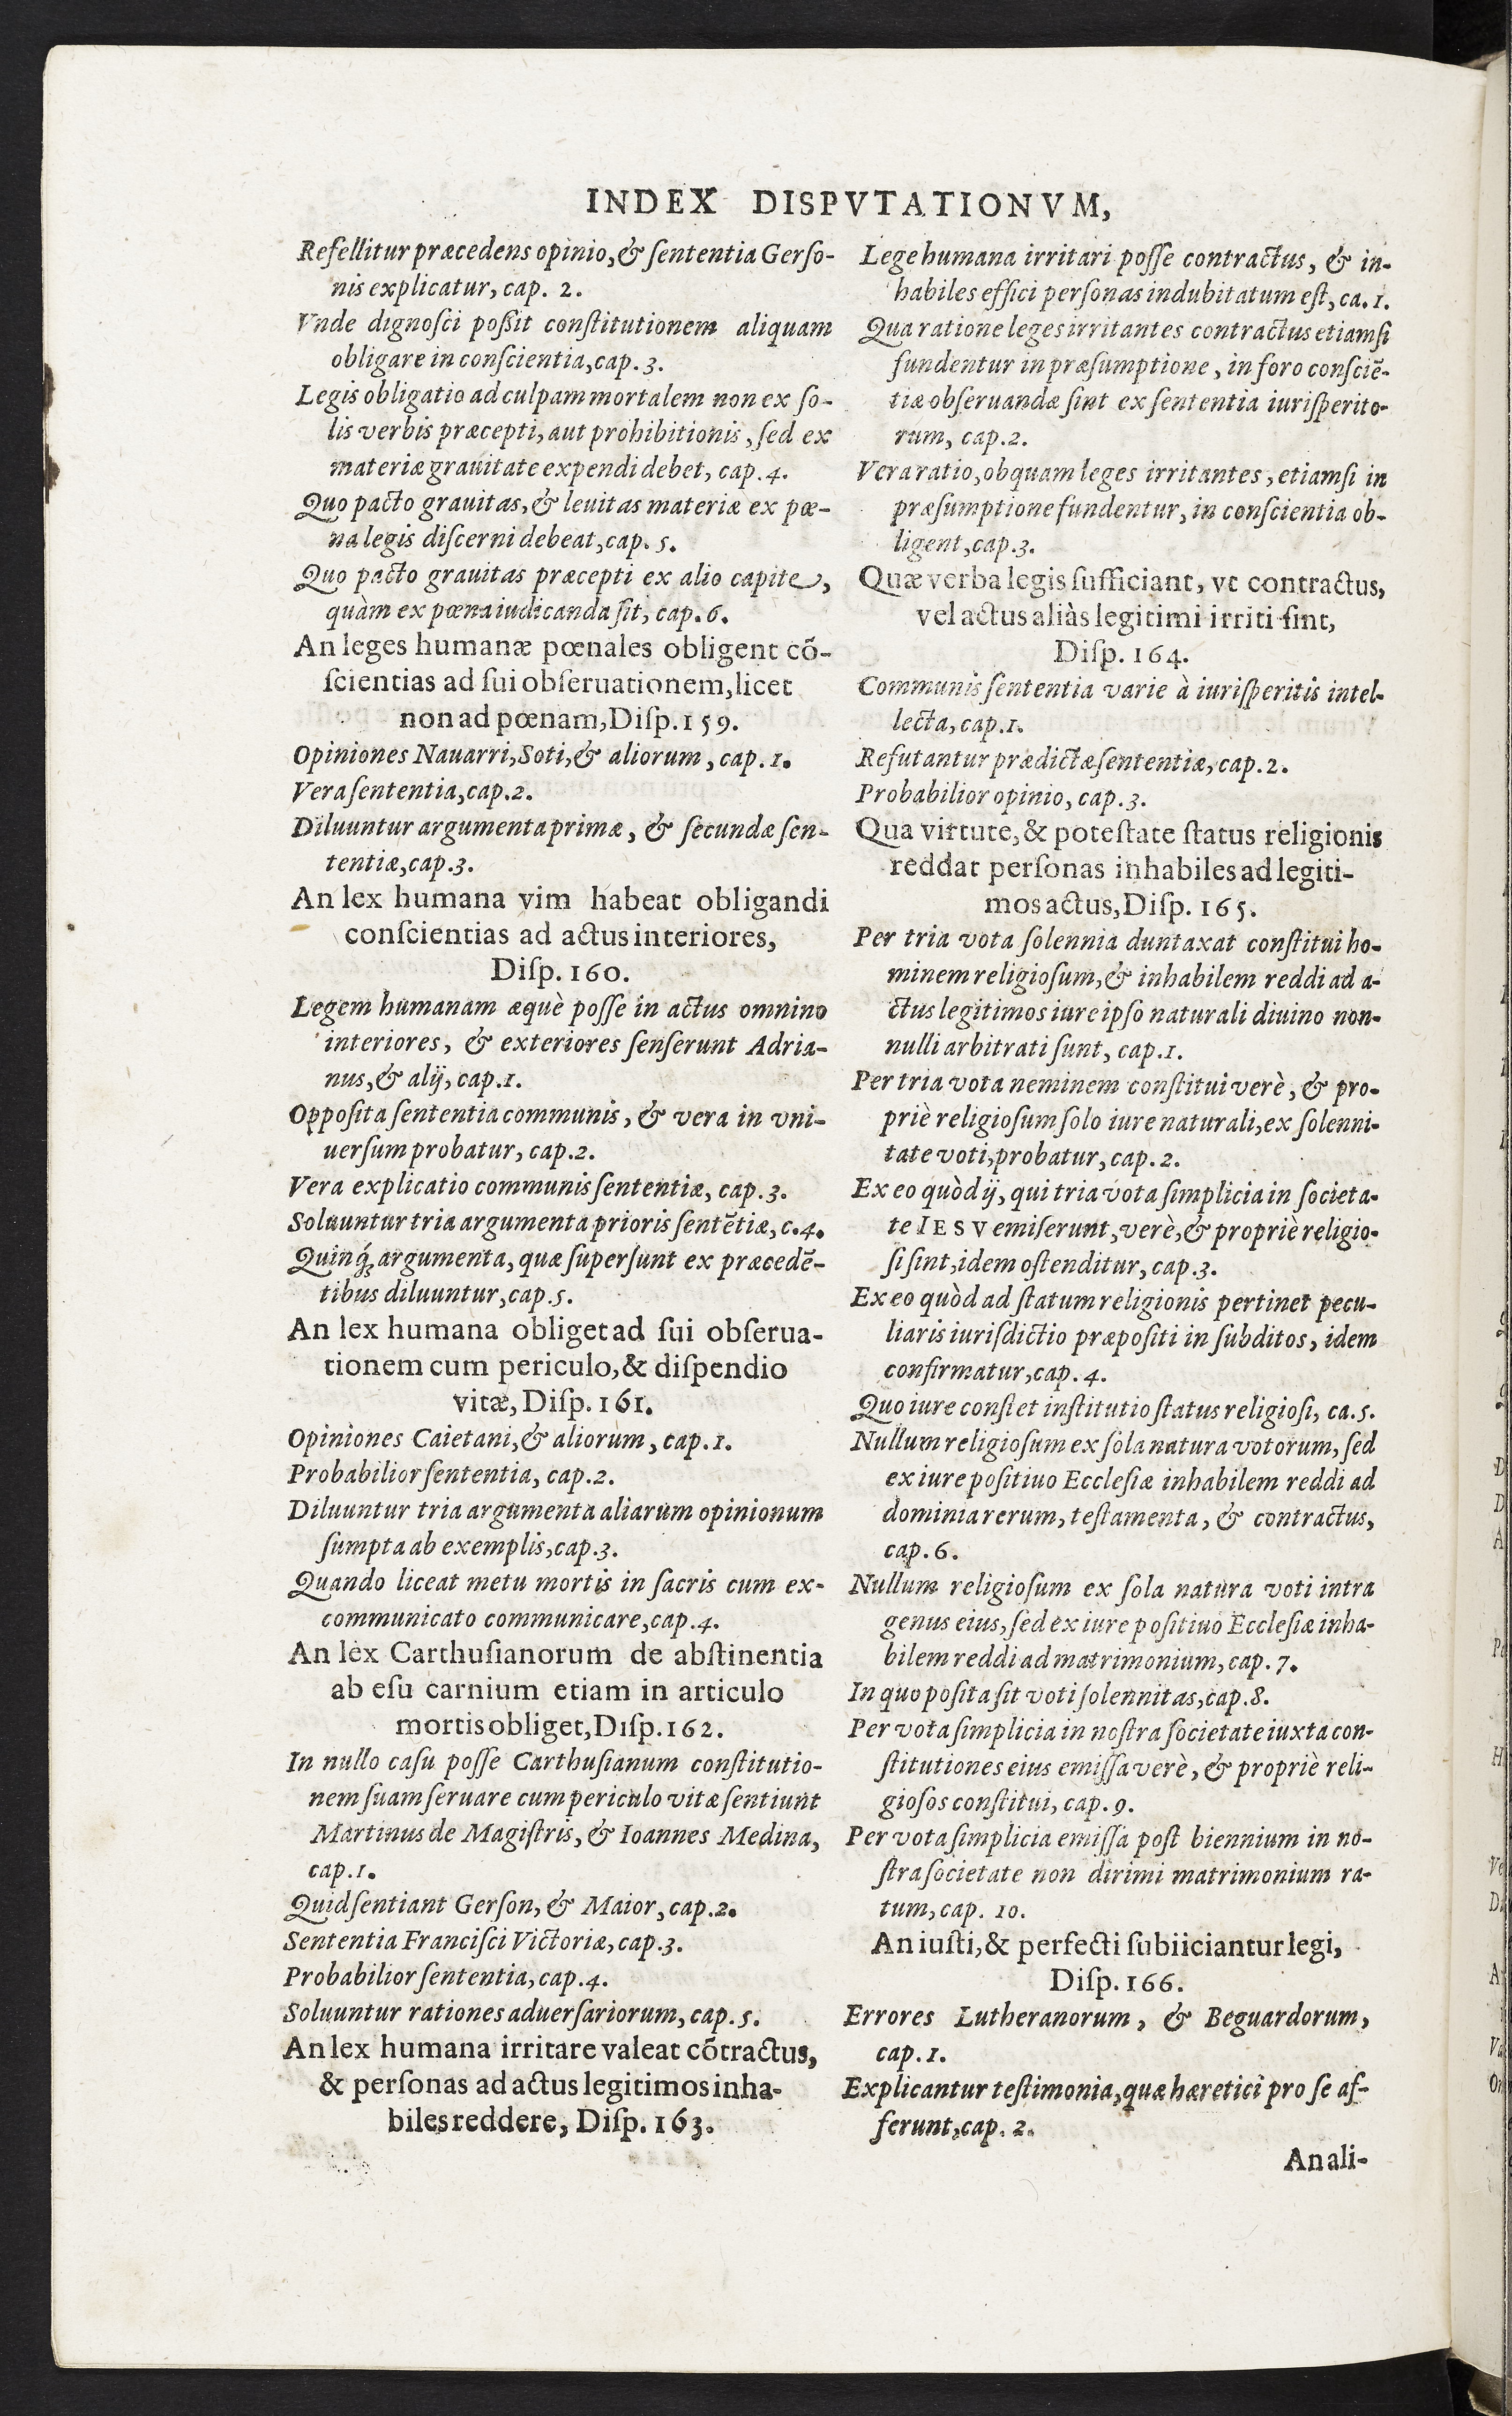 INDEX DISPVTATIONVM,
Refellitur præcedens opinio, & ſententia Gerſo-
nis explicatur, cap. 2.
Vnde dignoſci poßit conſtitutionem aliquam
obligare in conſcientia, cap. 3.
Legis obligatio ad culpam mortalem non ex ſo-
lis verbis præcepti, aut prohibitionis, ſed ex
materiæ grauitate expendi debet, cap. 4.
Quo pacto grauitas, & leuitas materiæ ex pœ-
na legis diſcerni debeat, cap. 5.
Quo pacto grauitas præcepti ex alio capite,
quàm ex pœna iudicanda ſit, cap. 6.
An leges humanæ pœnales obligent cõ-
ſcientias ad ſui obſeruationem, licet
non ad pœnam, Diſp. 159.
Opiniones Nauarri, Soti, & aliorum, cap. 1.
Vera ſententia, cap. 2.
Diluuntur argumenta primæ, & ſecundæ ſen-
tentiæ, cap. 3.
An lex humana vim habeat obligandi
conſcientias ad actus interiores,
Diſp. 160.
Legem humanam æquè poſſe in actus omnino
interiores, & exteriores ſenſerunt Adria-
nus, & alij, cap. 1.
Oppoſita ſententia communis, & vera in vni-
uerſum probatur, cap. 2.
Vera explicatio communis ſententiæ, cap. 3.
Soluuntur tria argumenta prioris ſentẽtiæ, c. 4.
Quinq́; argumenta, quæ ſuperſunt ex præcedẽ-
tibus diluuntur, cap. 5.
An lex humana obliget ad ſui obſerua-
tionem cum periculo, & diſpendio
vitæ, Diſp. 161.
Opiniones Caietani, & aliorum, cap. 1.
Probabilior ſententia, cap. 2.
Diluuntur tria argumenta aliarum opinionum
ſumpta ab exemplis, cap. 3.
Quando liceat metu mortis in ſacris cum ex-
communicato communicare, cap. 4.
An lex Carthuſianorum de abſtinentia
ab eſu carnium etiam in articulo
mortis obliget, Diſp. 162.
In nullo caſu poſſe Carthuſianum conſtitutio-
nem ſuam ſeruare cum periculo vitæ ſentiunt
Martinus de Magiſtris, & Ioannes Medina,
cap. 1.
Quid ſentiant Gerſon, & Maior, cap. 2.
Sententia Franciſci Victoriæ, cap. 3.
Probabilior ſententia, cap. 4.
Soluuntur rationes aduerſariorum, cap. 5.
An lex humana irritare valeat cõtractus,
& perſonas ad actus legitimos inha-
biles reddere, Diſp. 163.
Lege humana irritari poſſe contractus, & in-
habiles effici perſonas indubitatum eſt, ca. 1.
Qua ratione leges irritantes contractus etiamſi
fundentur in præſumptione, in foro conſciẽ-
tiæ obſeruandæ ſint ex ſententia iuriſperito-
rum, cap. 2.
Vera ratio, ob quam leges irritantes, etiamſi in
præſumptione fundentur, in conſcientia ob-
ligent, cap. 3.
Quæ verba legis ſufficiant, vt contractus,
vel actus aliàs legitimi irriti ſint,
Diſp. 164.
Communis ſententia varie à iuriſperitis intel-
lecta, cap. 1.
Refutantur prædictæ ſententiæ, cap. 2.
Probabilior opinio, cap. 3.
Qua virtute, & poteſtate ſtatus religionis
reddat perſonas inhabiles ad legiti-
mos actus, Diſp. 165.
Per tria vota ſolennia duntaxat conſtitui ho-
minem religioſum, & inhabilem reddi ad a-
ctus legitimos iure ipſo naturali diuino non-
nulli arbitrati ſunt, cap. 1.
Per tria vota neminem conſtitui verè, & pro-
priè religioſum ſolo iure naturali, ex ſolenni-
tate voti, probatur, cap. 2.
Ex eo quòd ij, qui tria vota ſimplicia in ſocieta-
te IESV emiſerunt, verè, & propriè religio-
ſi ſint, idem oſtenditur, cap. 3.
Ex eo quòd ad ſtatum religionis pertinet pecu-
liaris iuriſdictio præpoſiti in ſubditos, idem
confirmatur, cap. 4.
Quo iure conſtet inſtitutio ſtatus religioſi, ca. 5.
Nullum religioſum ex ſola natura votorum, ſed
ex iure poſitiuo Eccleſiæ inhabilem reddi ad
dominia rerum, teſtamenta, & contractus,
cap. 6.
Nullum religioſum ex ſola natura voti intra
genus eius, ſed ex iure poſitiuo Eccleſiæ inha-
bilem reddi ad matrimonium, cap. 7.
In quo poſita ſit voti ſolennitas, cap. 8.
Per vota ſimplicia in noſtra ſocietate iuxta con-
ſtitutiones eius emiſſa verè, & propriè reli-
gioſos conſtitui, cap. 9.
Per vota ſimplicia emiſſa poſt biennium in no-
ſtra ſocietate non dirimi matrimonium ra-
tum, cap. 10.
An iuſti, & perfecti ſubiiciantur legi,
Diſp. 166.
Errores Lutheranorum, & Beguardorum,
cap. 1.
Explicantur teſtimonia, quæ hæretici pro ſe af-
ferunt, cap. 2.
An ali-